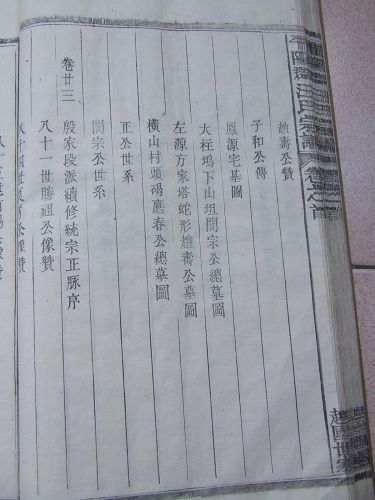 趙壽公贊
子和公傳
鳳源宅基圖
大柱塢下山坦閏宗公總墓圖
左源方家塔蛇形趙壽公墓圖
橫山村頭碣應春公總墓圖
正公世系
閏宗公世系
卷廿三
殷家段派續修統宗正脉序
八十一世勝祖公像贊
趙國世家